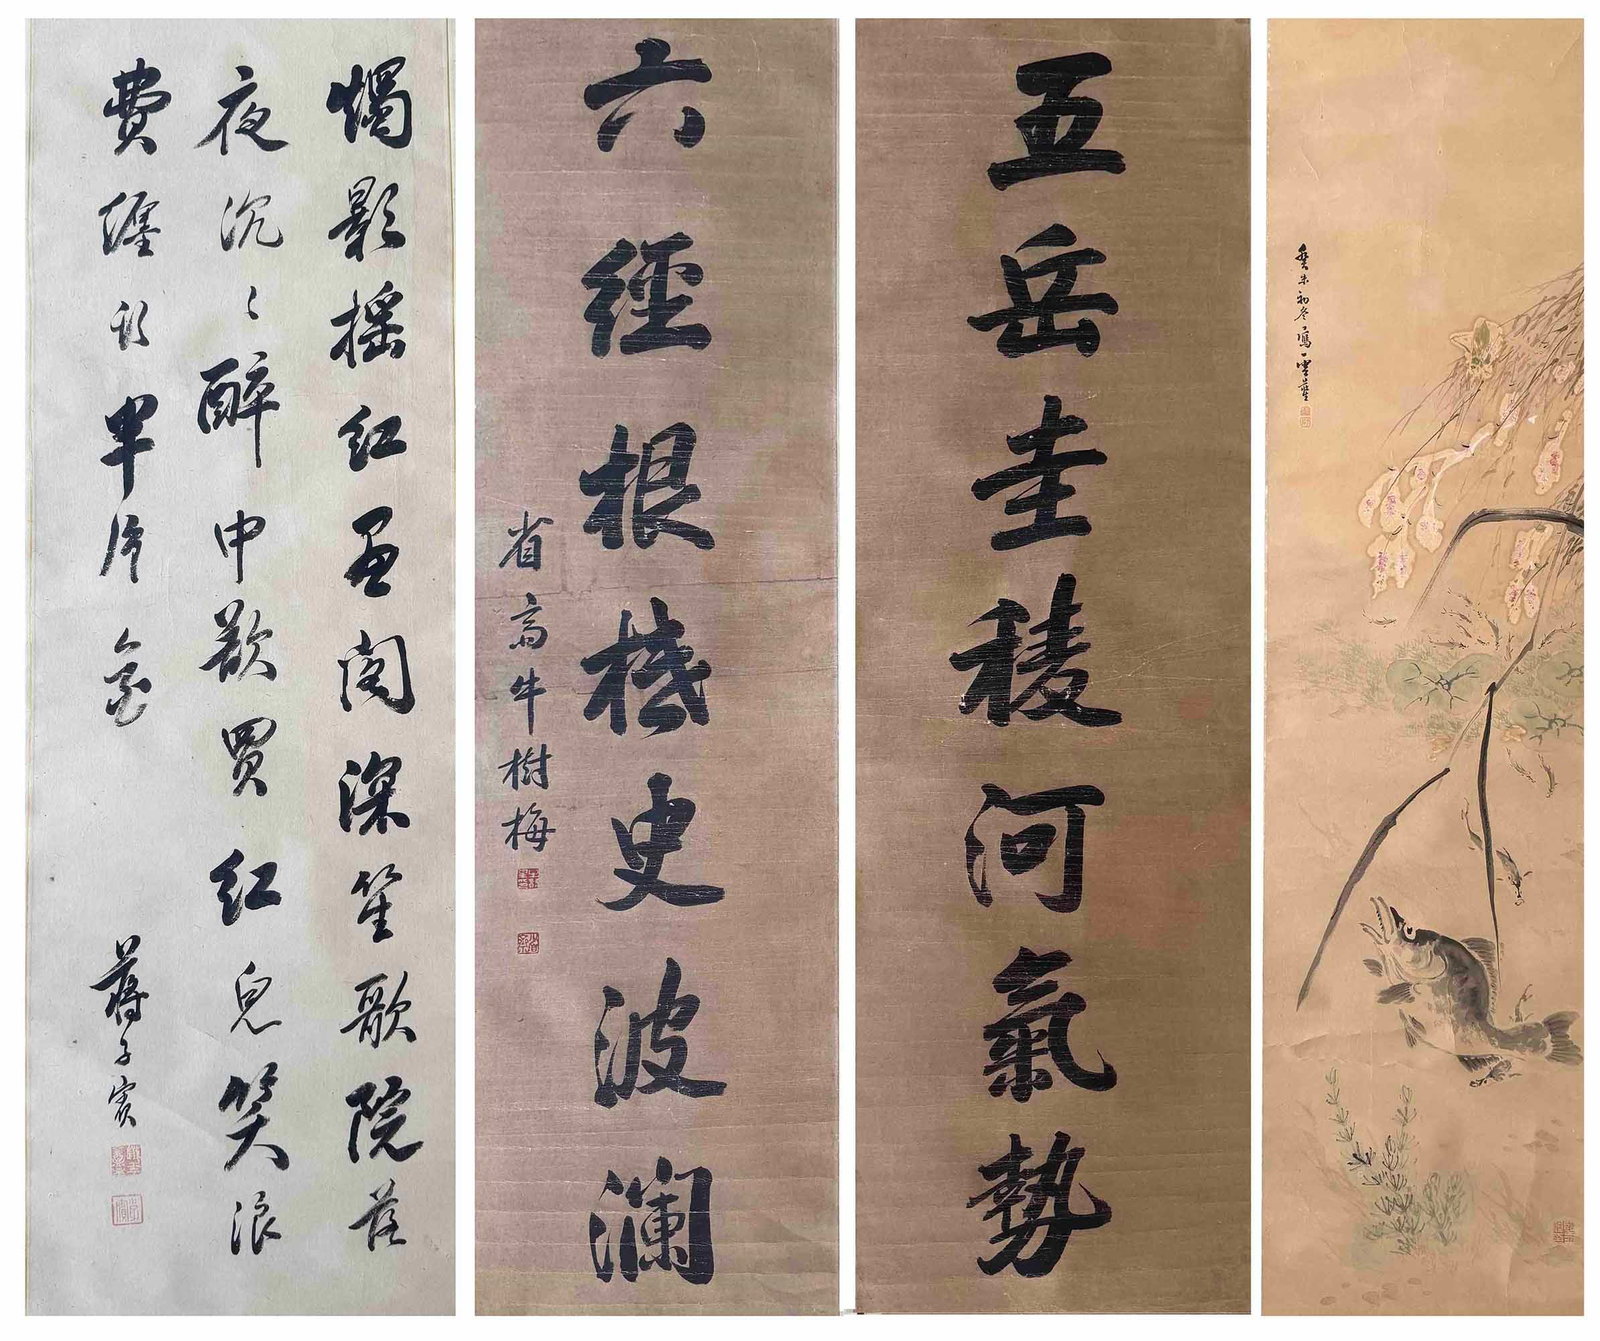 五岳圭稜河氣勢
六經根柢史波瀾
省齋牛樹梅
燭影搖紅畫閣深笙歌院落
夜沉沉醉中欲買紅兒笑浪
費纏頭半片金
蔣子賓
癸未初冬寫